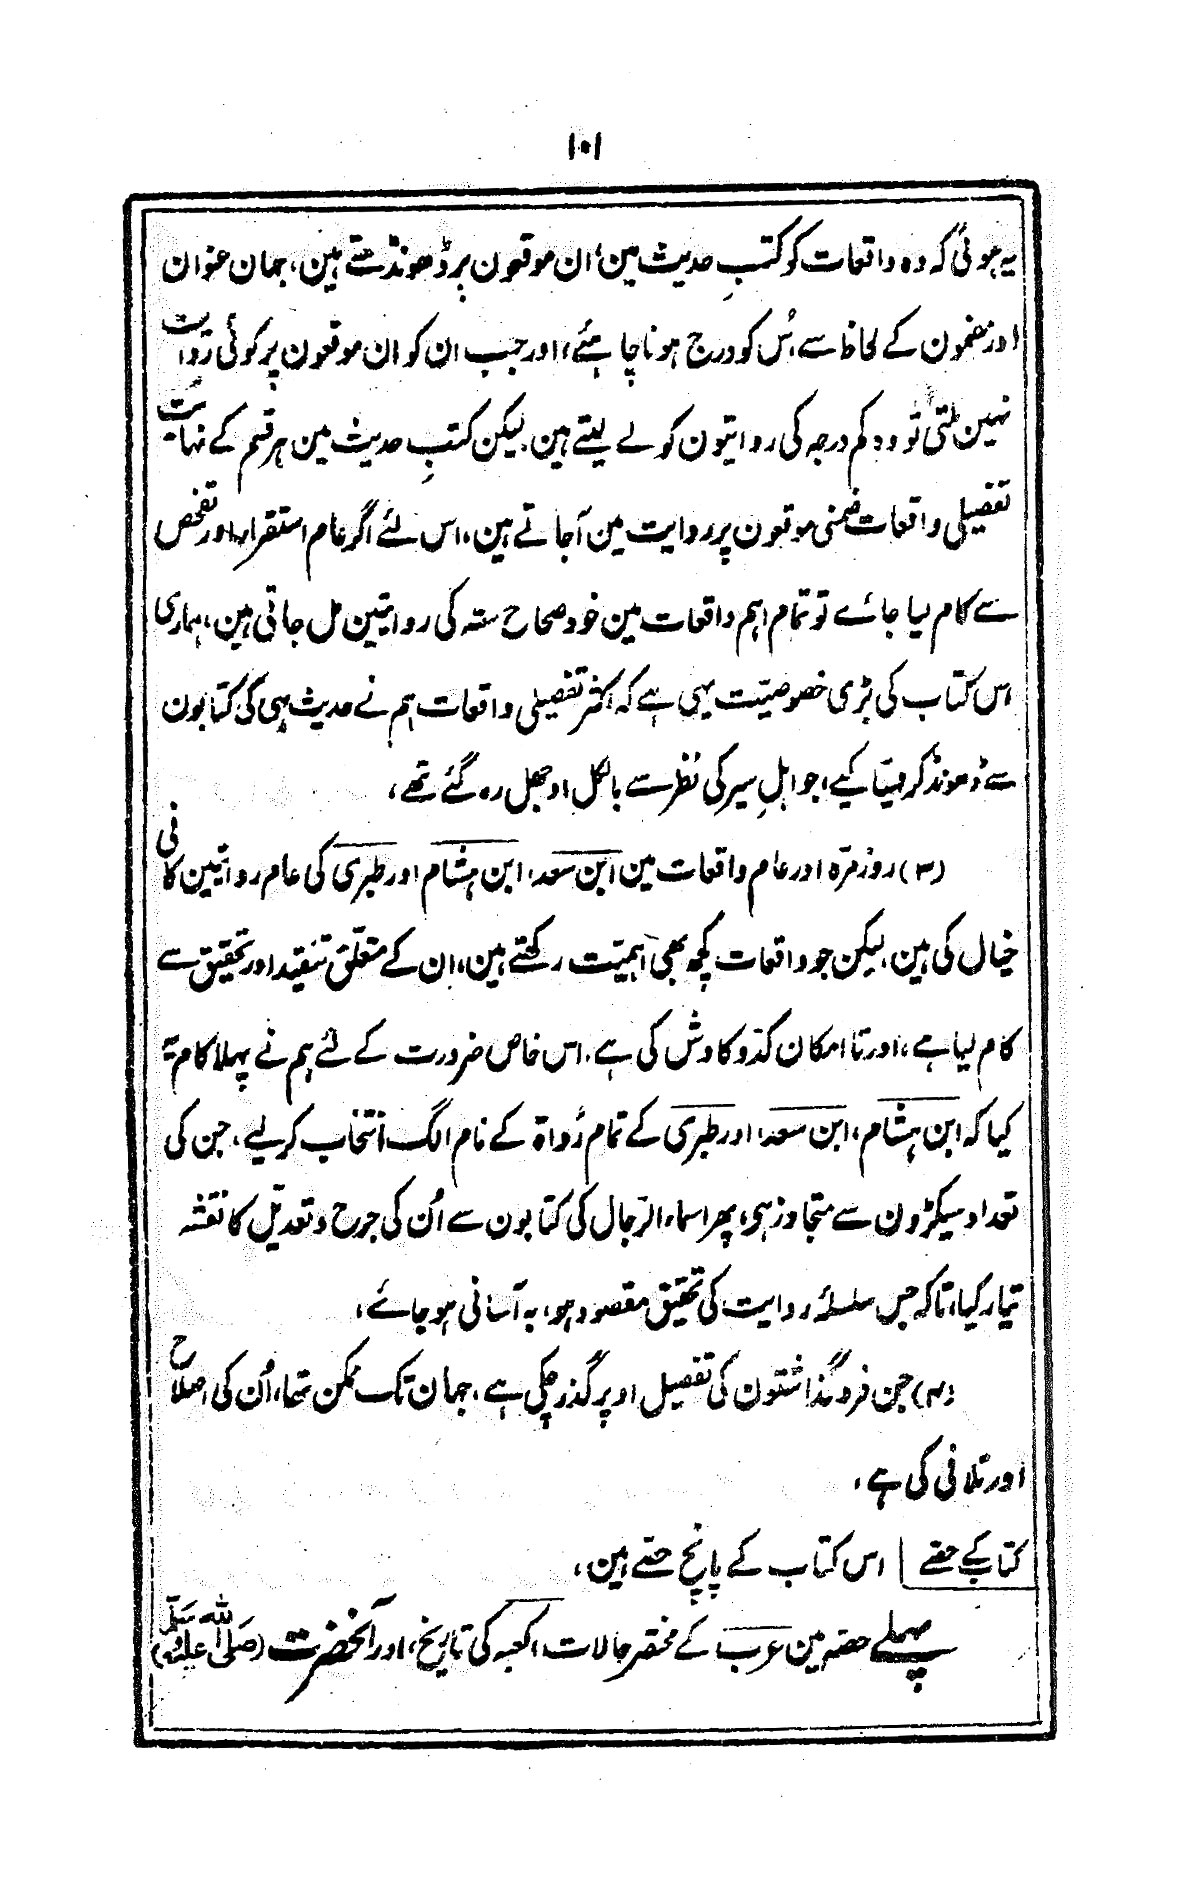 ۱۰۱
یہ ہوئی کہ وہ واقعات کو کتبِ حدیث مین، ان موقعون پر ڈھونڈھتے ہین، جہان عنوان
اور مضمون کے لحاظ سے، اُس کو درج ہونا چاہئے، اور جب ان کو ان موقعون پر کوئی روایت
نہین ملتی تو وہ کم درجہ کی روایتون کو لے لیتے ہین، لیکن کتبِ حدیث مین ہر قسم کے نہایت
تفصیلی واقعات ضمنی موقعون پر روایت مین آجاتے ہین، اس لئے اگر عام استقراء اور تفحص
سے کام لیا جائے تو تمام اہم واقعات مین خود صحاح ستہ کی روایتین مل جاتی ہین، ہماری
اس کتاب کی بڑی خصوصیّت یہی ہے کہ اکثر تفصیلی واقعات ہم نے حدیث ہی کی کتابون
سے ڈھونڈکر مہیّا کیے، جو اہلِ سیر کی نظر سے بالکل اوجھل رہ گئے تھے،
(۳) روز مرّہ اور عام واقعات مین ابن سعد، ابن ہشام اور طبری کی عام روایتین کافی
خیال کی ہین، لیکن جو واقعات کچھ بھی اہمیّت رکھتے ہین، ان کے متعلّق تنقید اور تحقیق سے
کام لیا ہے، اور تا امکان کدّ و کاوش کی ہے، اس خاص ضرورت کے لئے ہم نے پہلا کام یہ
کیا کہ ابن ہشام، ابن سعد، اور طبری کے تمام رُواۃ کے نام الگ انتخاب کرلیے، جن کی
تعداد سیکڑون سے متجاوز ہی، پھر اسماء الرّجال کی کتابون سے اُن کی جرح و تعدیل کا نقشہ
تیار کیا، تاکہ جس سلسلۂ روایت کی تحقیق مقصود ہو، بہ آسانی ہوجائے،
(۴) جن فروگذاشتون کی تفصیل اوپر گذر چکی ہے، جہان تک ممکن تھا، اُن کی اصلاح
اور تلافی کی ہے،
کتاب کے حصّے | اس کتاب کے پانچ حصّے ہین،
پہلے حصّہ مین عرب کے مختصر حالات، کعبہ کی تاریخ، اور آنحضرت (صلی اللہ علیہ وسلم)